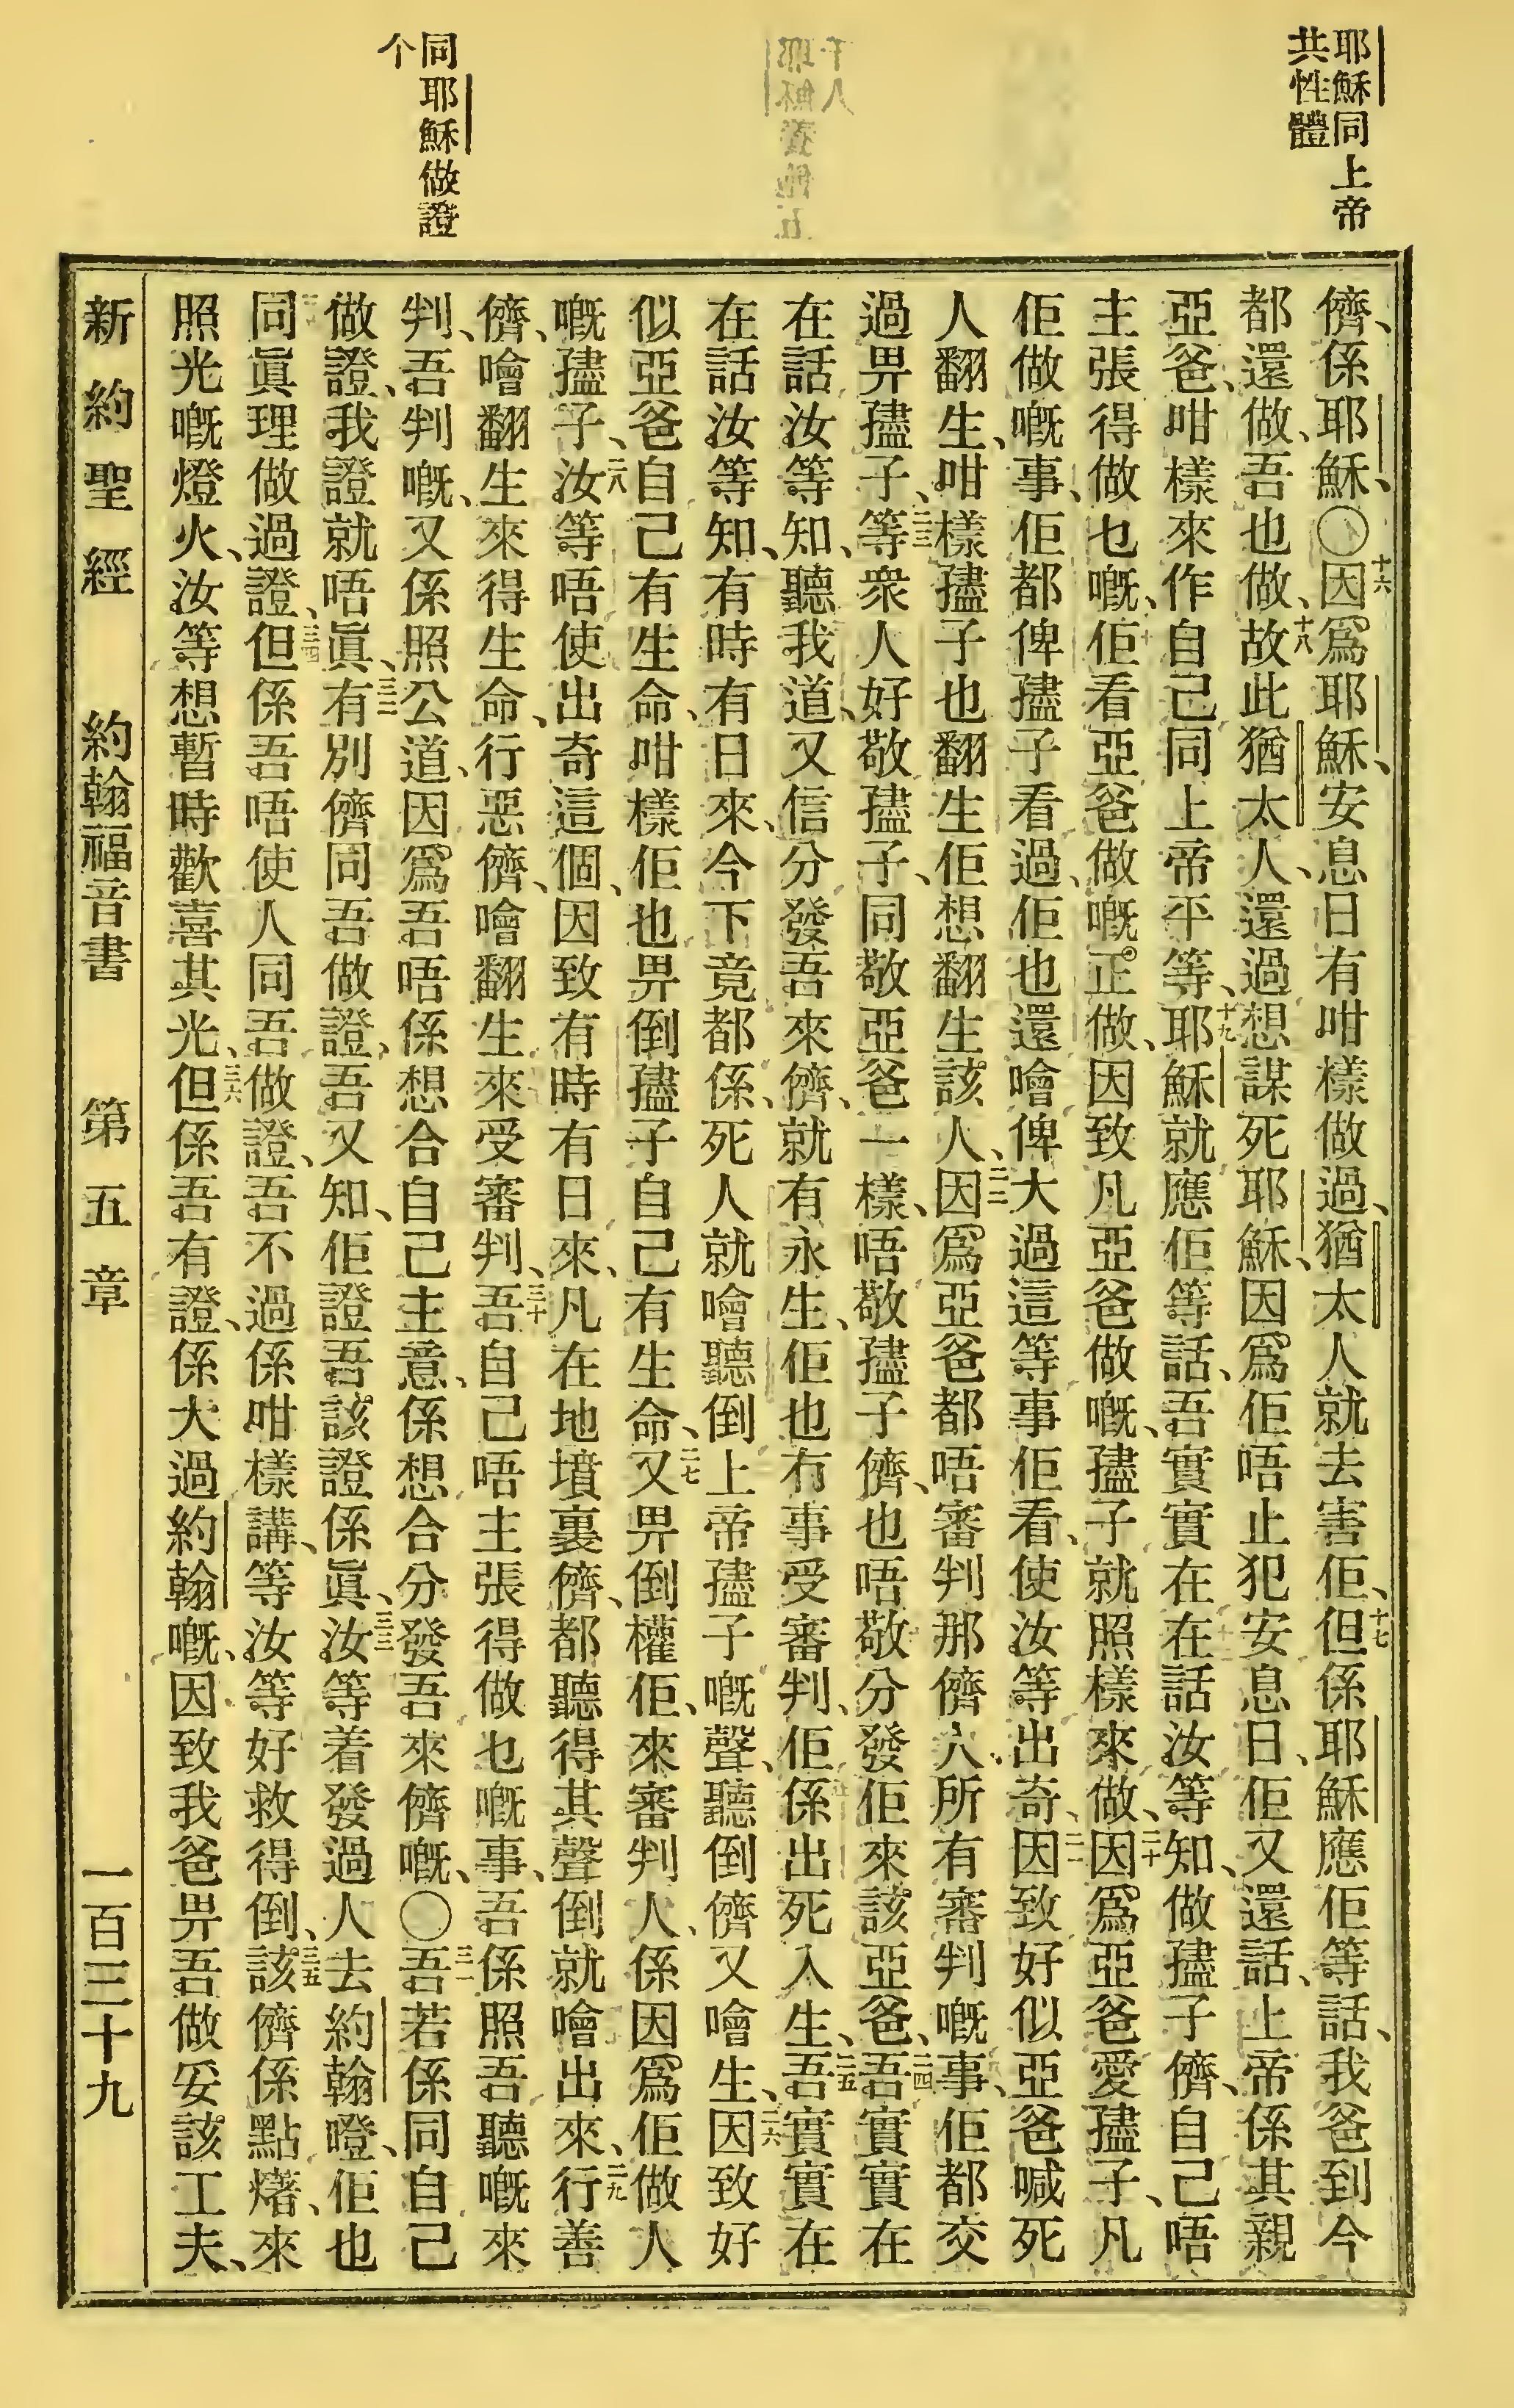 耶穌同上帝
共性體
同耶穌做證
个
儕、係耶穌、〇十六因爲耶穌、安息日有咁樣做過、猶太人就去害佢、十七但係耶穌應佢等話、我爸到今
都還做、吾也做、十八故此猶太人、還過想謀死耶穌、因爲佢唔止犯安息日、佢又還話、上帝係其親
亞爸、咁樣來作自己同上帝平等、十九耶穌就應佢等話、吾實實在在話汝等知、做孻子儕、自己唔
主張得做乜嘅、佢看亞爸做嘅。正做、因致凡亞爸做嘅、孻子就照樣來做、二十因爲亞爸愛孻子、凡
佢做嘅事、佢都俾孻子看過、佢也還噲俾大過這等事佢看、使汝等出奇、二一因致好似亞爸喊死
人翻生、咁樣孻子也翻生佢想翻生該人、二二因爲亞爸都唔審判那儕人、所有審判嘅事、佢都交
過畀孻子、二三等衆人好敬孻子、同敬亞爸一樣、唔敬孻子儕、也唔敬分發佢來該亞爸、二四吾實實在
在話汝等知、聽我道、又信分發吾來儕、就有永生、佢也冇事受審判、佢係出死入生、二五吾實實在
在話汝等知、有時有日來、今下竟都係、死人就噲聽倒上帝孻子嘅聲、聽倒儕又噲生、二六因致好
似亞爸自己有生命、咁樣佢也畀倒孻子自己有生命、二七又畀倒權佢、來審判人、係因爲佢做人
嘅孻子、二八汝等唔使出奇這個、因致有時有日來、凡在地墳裏儕、都聽得其聲倒就噲出來、二九行善
儕、噲翻生來得生命、行惡儕、噲翻生來受審判、三十吾自己唔主張得做乜嘅事、吾係照吾聽嘅來
判、吾判嘅、又係照公道、因爲吾唔係想合自己主意、係想合分發吾來儕嘅、〇三一吾若係同自己
做證、我證就唔眞、三二有別儕同吾做證、吾又知、佢證吾該證係眞、三三汝等着發過人去約翰噔、佢也
同眞理做過證、三四但係吾唔使人同吾做證、吾不過係咁樣講、等汝等好救得倒、三五該儕係點㸑、來
照光嘅燈火、汝等想暫時歡喜其光、三六但係吾有證、係大過約翰嘅、因致我爸畀吾做妥該工夫、
新約聖經 約翰福音書 第五章 一百三十九